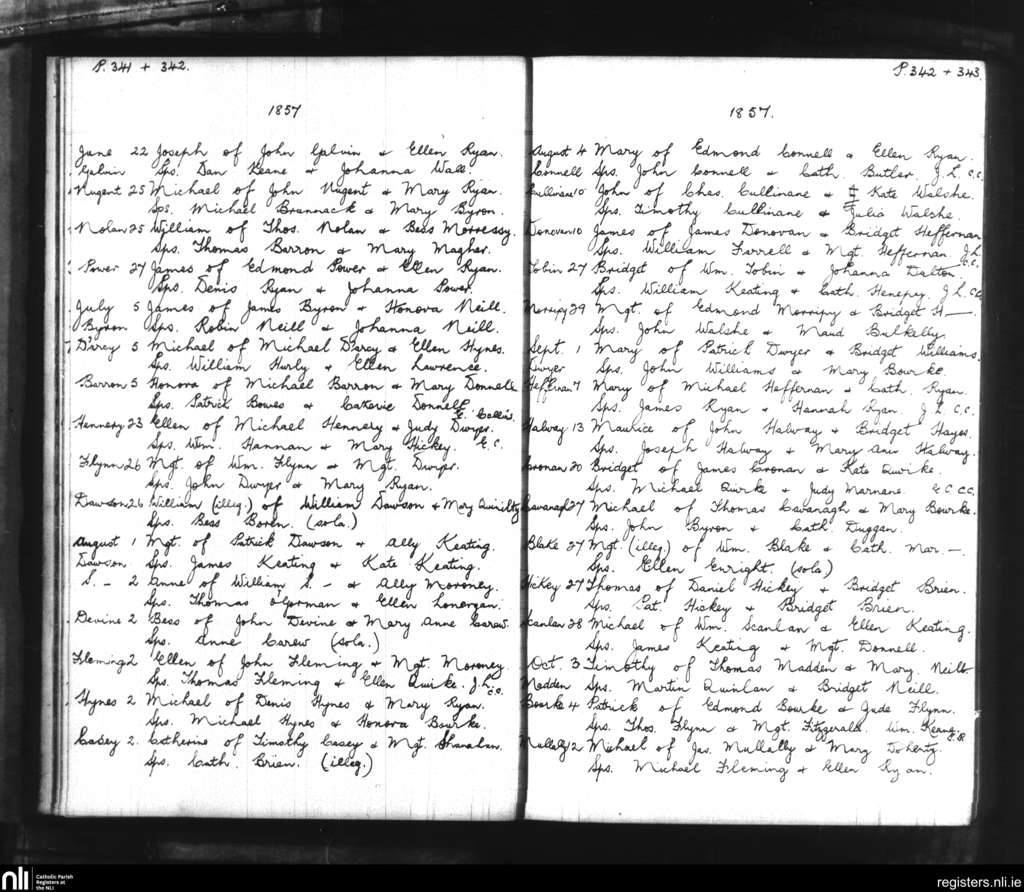 P. 341 + 342.
1857
June 22 Joseph of John Galvin & Ellen Ryan.
Galvin Sps. Dan Keane & Johanna Wall.
Nugent 25 Michael of John Nugent & Mary Ryan.
Sps. Michael Brannack & Mary Byron.
Nolan 25 William of Thos. Nolan & Bess Morressy.
Sps. Thomas Barron & Mary Magher.
Power 27 James of Edmond Power & Ellen Ryan.
Sps. Denis Ryan & Johanna Power.
July 5 James of James Byron & Honora Neill.
Byron Sps. Robin Neill & Johanna Neill.
D'arcy 5 Michael of Michael D'arcy & Ellen Hynes.
Sps. William Hurly & Ellen Lawrence.
Barron 5 Honora of Michael Barron & Mary Donnell
Sps. Patrick Bowes & Caterie Donnell.
E. Collins
Hennery 23 Ellen of Michael Hennery & Judy Dwyer.
Sps. Wm. Hannan & Mary Hickey. C.C.
Flynn 26 Mgt. of Wm. Flynn & Mgt. Dwyer.
Sps. John Dwyer & Mary Ryan.
Dawson 26 William (illeg.) of William Dawson & Mary Quirilty
Sps. Bess Boren. (sola.)
August 1 Mgt. of Patrick Dawson & Ally Keating.
Dawson Sps. James Keating & Kate Keating.
S. - 2 Anne of William S. - & Ally Moroney.
Sps. Thomas O'Gorman & Ellen Lonergan.
Devine 2 Bess of John Devine & Mary Anne Carew.
Sps. Anne Carew (sola.)
Fleming 2 Ellen of John Fleming & Mgt. Moroney.
Sps. Thomas Fleming & Ellen Quirke. J.L. C.C.
Hynes 2 Michael of Denis Hynes & Mary Ryan.
Sps. Michael Hynes & Honora Bourke.
Casey 2. Catherine of Timothy Casey & Mgt. Shanahan.
Sps. Cath. Brien. (illeg.)
P. 342 + 343.
1857.
August 4 Mary of Edmond Connell & Ellen Ryan.
Connell Sps. John Connell & Cath. Butler. J.L. C.C.
Cullinane 10 John of Chas. Cullinane & Kate Walshe.
Sps. Timothy Cullinane & Julia Walshe.
Donovan 10 James of James Donovan & Bridget Heffernan
Sps. William Farrell & Mgt. Heffernan. J.L. C.C.
Tobin 27 Bridget of Wm. Tobin & Johanna Dalton.
Sps. William Keating & Cath. Henepey. J.L. C.C.
Morripy 29 Mgt. of Edmond Morripy & Bridget H—.
Sps. John Walshe & Maud Bulkelly.
Sept. 1 Mary of Patrick Dwyer & Bridget Williams.
Dwyer Sps. John Williams & Mary Bourke.
Heffernan 7 Mary of Michael Heffernan & Cath. Ryan.
Sps. James Ryan & Hannah Ryan. J.L. C.C.
Halway 13 Maurice of John Halway & Bridget Hayes.
Sps. Joseph Halway & Mary Ann Halway.
Cronan 20 Bridget of James Cronan & Kate Quirke.
Sps. Michael Quirke & Judy Marnane. E.C. C.C.
Cavanagh 27 Michael of Thomas Cavanagh & Mary Bourke.
Sps. John Byron & Cath. Duggan.
Blake 27 Mgt. (illeg.) of Wm. Blake & Cath. Mar. -.
Sps. Ellen Enright. (sola)
Hickey 27 Thomas of Daniel Hickey & Bridget Brien.
Sps. Pat. Hickey & Bridget Brien.
Scanlan 28 Michael of Wm. Scanlan & Ellen Keating.
Sps. James Keating & Mgt. Donnell.
Oct. 3 Timothy of Thomas Madden & Mary Neill.
Madden Sps. Martin Quinlan & Bridget Neill.
Bourke 4 Patrick of Edmond Bourke & Jude Flynn.
Sps. Thos. Flynn & Mgt. Fitzgerald. Wm.
Mullally 12 Michael of Jas. Mullally & Mary Doherty.
Sps. Michael Fleming & Ellen Ryan.
nli
Catholic Parish
Registers at
the NLI
registers.nli.ie